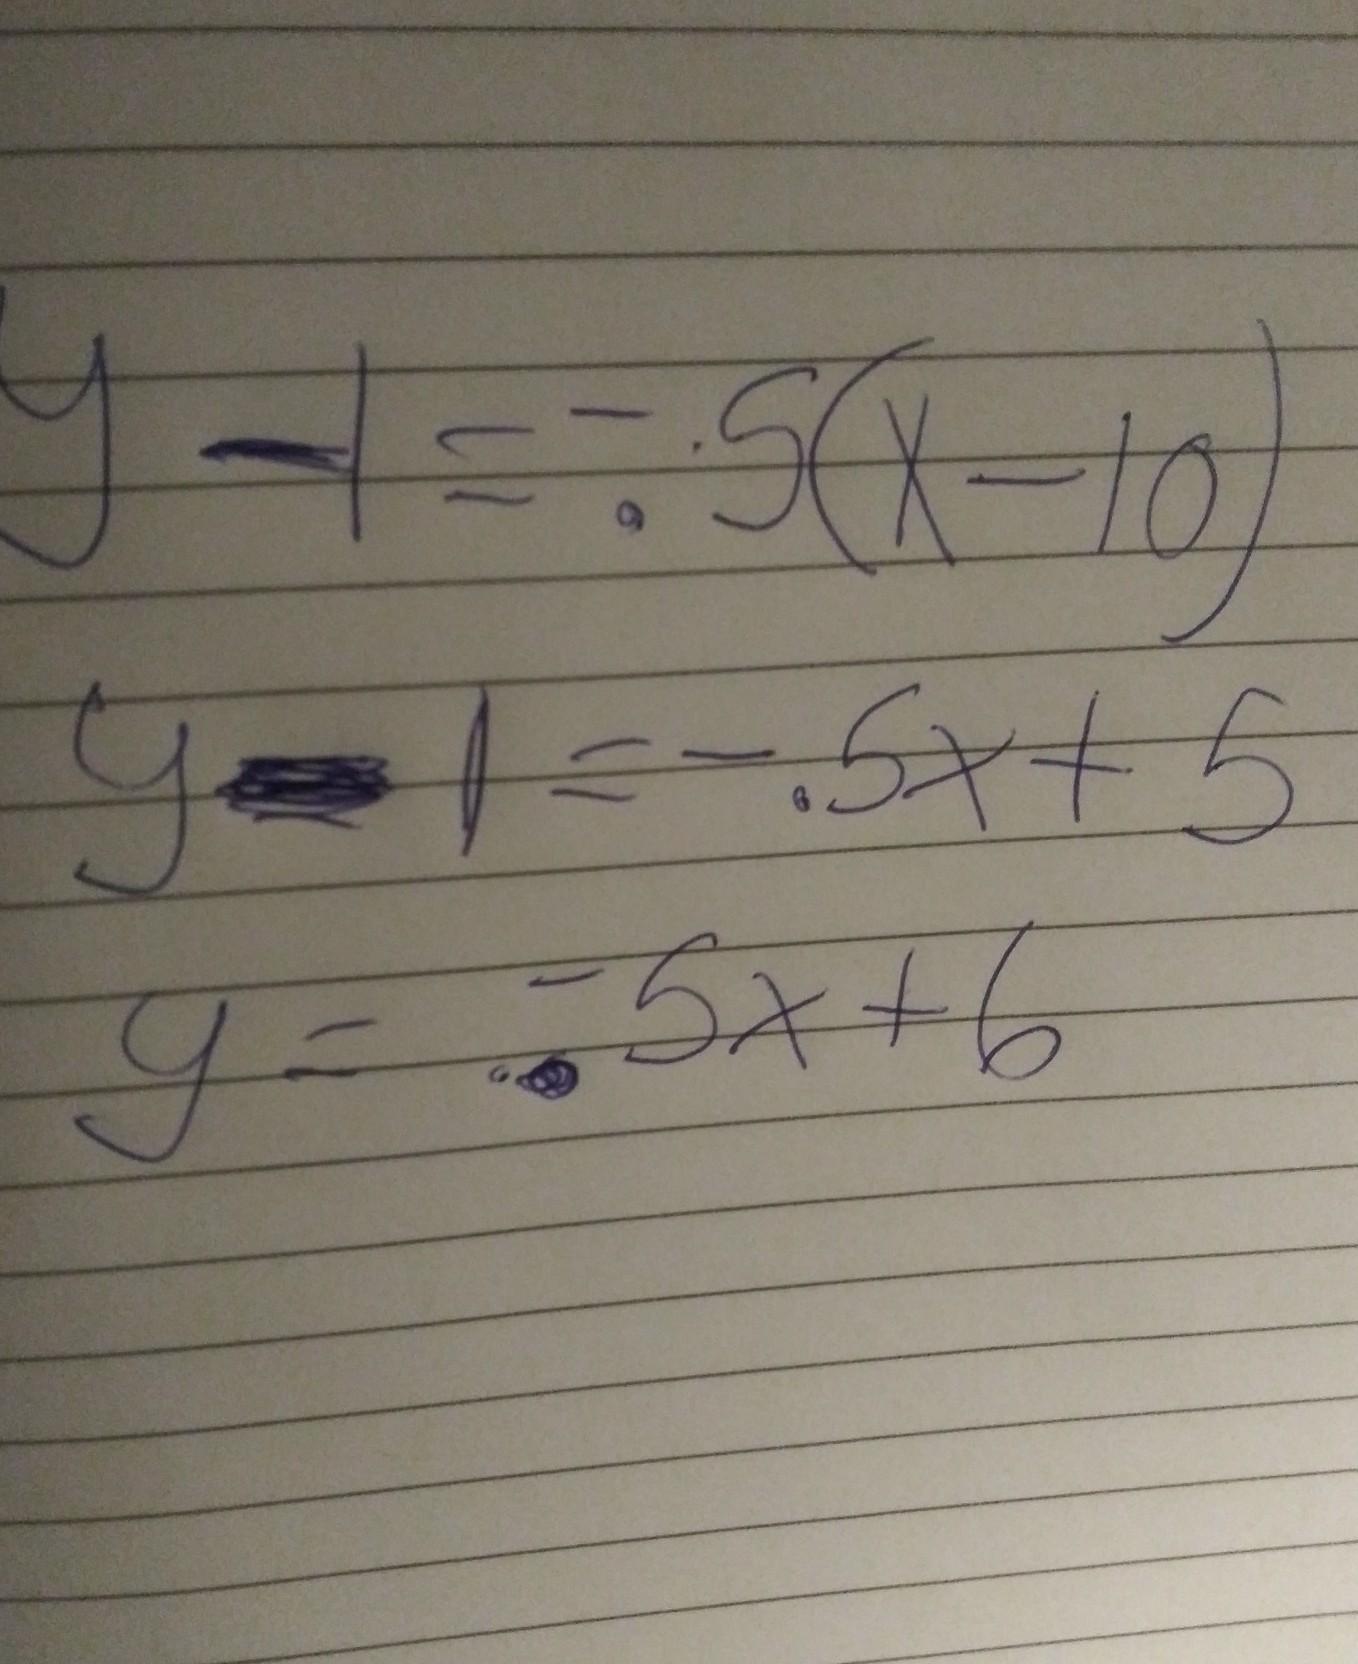 y - 1 = -.5(x - 10)
y - 1 = -.5x + 5
y = -.5x + 6